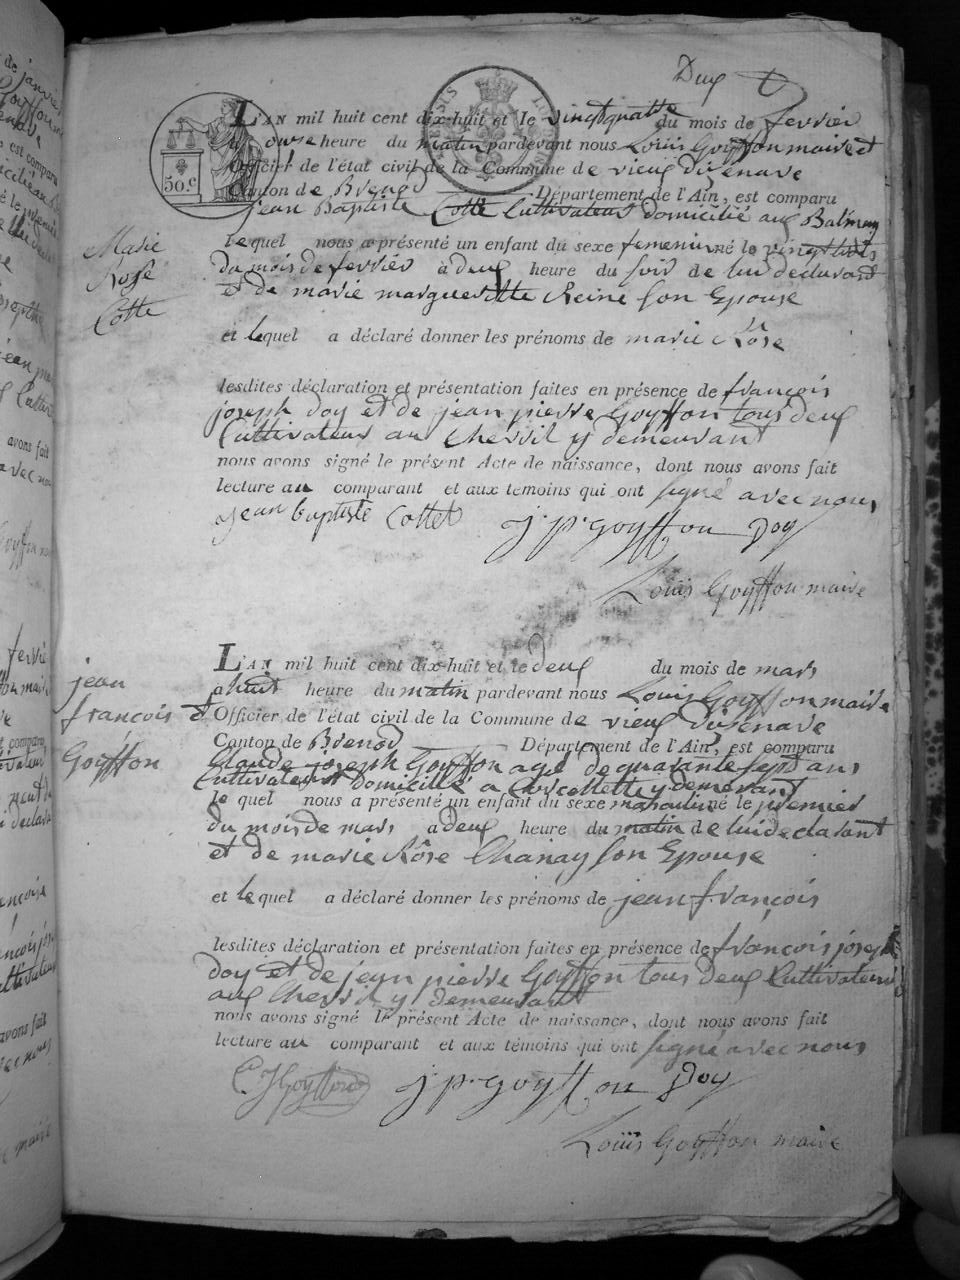 Deux
50.c
L'AN mil huit cent dix-huit et le vingtquatre du mois de fevrier
heure du matin pardevant nous Louis Goyffon maire et
Officier de l'état civil de la Commune de vieux disenave
Canton de Brenod Département de l'Ain, est comparu
jean Baptiste Cotte Cultivateur domicilié aux Balmay
lequel nous a présenté un enfant du sexe femenin né le
Du mois de fevrier à deux heure du soir de lui declarant
et de marie margueritte Reine son Epouse
Marie
Rose
Cotte
et lequel a déclaré donner les prénoms de marie Rose
lesdites déclaration et présentation faites en présence de françois
joseph doy et de jean pierre Goyffon tous deux
Cultivateur au Chevril y demeurant
nous avons signé le présent Acte de naissance, dont nous avons fait
lecture au comparant et aux temoins qui ont signé avec nous
jean baptiste Cottet j. p. goyffon Doy
Louis Goyffon maire
L'AN mil huit cent dix-huit et le deux du mois de mars
a huit heure du matin pardevant nous Louis Goyffon maire
et Officier de l'état civil de la Commune de vieux disenave
Canton de Brenod Département de l'Ain, est comparu
Claude joseph Goyffon agé de quarante sept ans
Cultivateur Domicillé a Corcellette y demeurant
le quel nous a présenté un enfant du sexe masculin né le premier
du mois de mars a deux heure du matin de lui declarant
et de marie Rôse Chanay son Epouse
jean
françois
Goyffon
et lequel a déclaré donner les prénoms de jean françois
lesdites déclaration et présentation faites en présence de françois joseph
doy et de jean pierre Goyffon tous deux Cultivateurs
aux Chevril y demeurant
nous avons signé le présent Acte de naissance, dont nous avons fait
lecture au comparant et aux témoins qui ont signé avec nous
C J Goyffon j. p. goyffon Doy
Louïs Goyffon maire